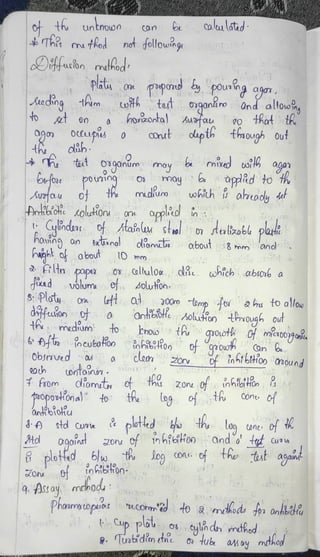 of the unknown can be calculated.
* This method not following
② Diffusion method:
Plates are prepared by pouring agar,
seeding them with test organism and allowing
to set on a horizontal surface so that the
agar occupies a const depth through out
the dish.
* The test organism may be mixed with agar
before pouring or may be applied to the
surface of the medium which is already set
Antibiotic solutions are applied in:
1. Cylinders of stainless steel or sterilizable plastic
having an external diameter about 8 mm and
height of about 10 mm
2. Filter paper or cellulose disc which absorb a
fixed volume of solution.
5. Plates are left at room temp for 2 hrs to allow
diffusion of a antibiotic solution through out
the medium to know the growth of microorganism
6. After incubation inhibition of growth can be
observed as a clear zone of inhibition around
each container.
7. From diameter of this zone of inhibition is
proportional to the log of the conc of
antibiotic
8. A std curve is plotted b/w the log conc. of the
std against zone of inhibition and a test curve
is plotted b/w the log conc. of the test against
zone of inhibition.
9. Assay methods:
Pharmacopoeias recommed to 2 methods for antibiotic
1. Cup plate or cylinder method
2. Turbidimetric or tube assay method